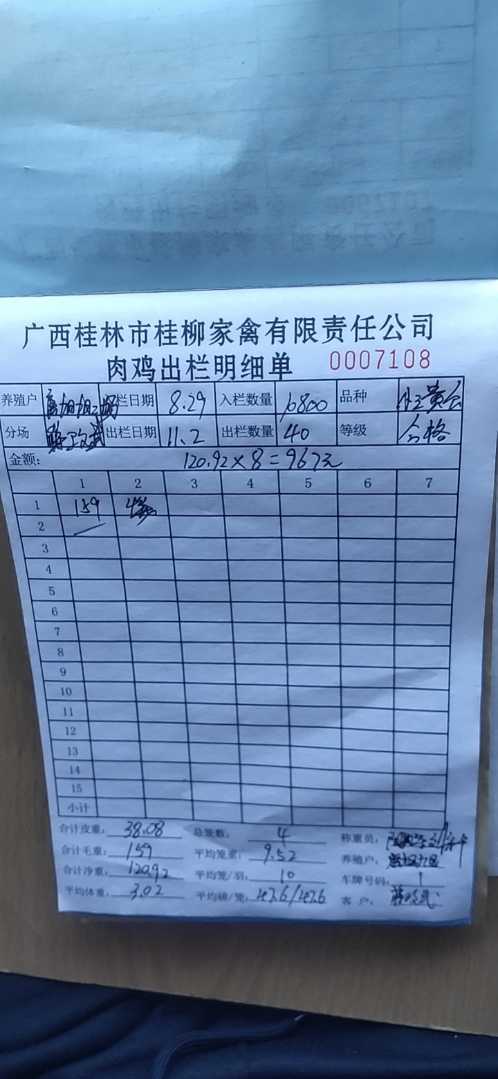 广西桂林市桂柳家禽有限责任公司
肉鸡出栏明细单 0007108
养殖户 栏日期 8.29 入栏数量 6800 品种
分场 出栏日期 11.2 出栏数量 40 等级 合格
金额: 120.92×8=967元
1 2 3 4 5 6 7
1 159 4笼
2
3
4
5
6
7
8
9
10
11
12
13
14
15
小计
合计皮重: 38.08 总笼数: 4 称重员:
合计毛重: 159 平均笼重: 9.52 养殖户:
合计净重: 120.92 平均笼/羽: 10 车牌号码:
平均体重: 3.02 平均磅/笼: 客 户: